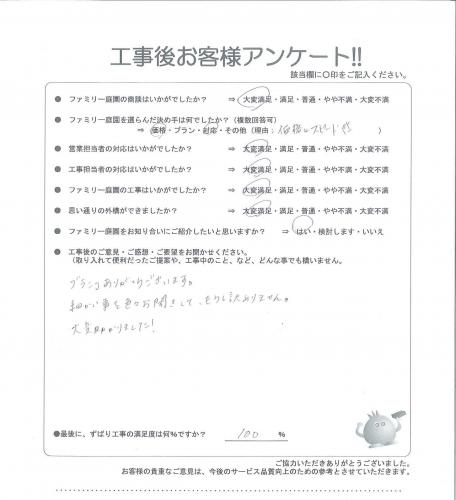 工事後お客様アンケート!!
該当欄に〇印をご記入ください。
● ファミリー庭園の商談はいかがでしたか? ⇒ 大変満足・満足・普通・やや不満・大変不満
● ファミリー庭園を選らんだ決め手は何でしたか?(複数回答可)
⇒ 価格・プラン・対応・その他(理由:価格とスピード感)
● 営業担当者の対応はいかがでしたか? ⇒ 大変満足・満足・普通・やや不満・大変不満
● 工事担当者の対応はいかがでしたか? ⇒ 大変満足・満足・普通・やや不満・大変不満
● ファミリー庭園の工事はいかがでしたか? ⇒ 大変満足・満足・普通・やや不満・大変不満
● 思い通りの外構ができましたか? ⇒ 大変満足・満足・普通・やや不満・大変不満
● ファミリー庭園をお知り合いにご紹介したいと思いますか? ⇒ はい・検討します・いいえ
● 工事後のご意見・ご感想・ご要望をお聞かせください。
(取り入れて便利だったご提案や、工事中のこと、など、どんな事でも構いません。
ありがとうございます。
細かい事を色々お聞きして、もうし訳ありません。
大変助かりました!
●最後に、ずばり工事の満足度は何%ですか? 100 %
ご協力いただきありがとうございました。
お客様の貴重なご意見は、今後のサービス品質向上のための参考とさせていただきます。